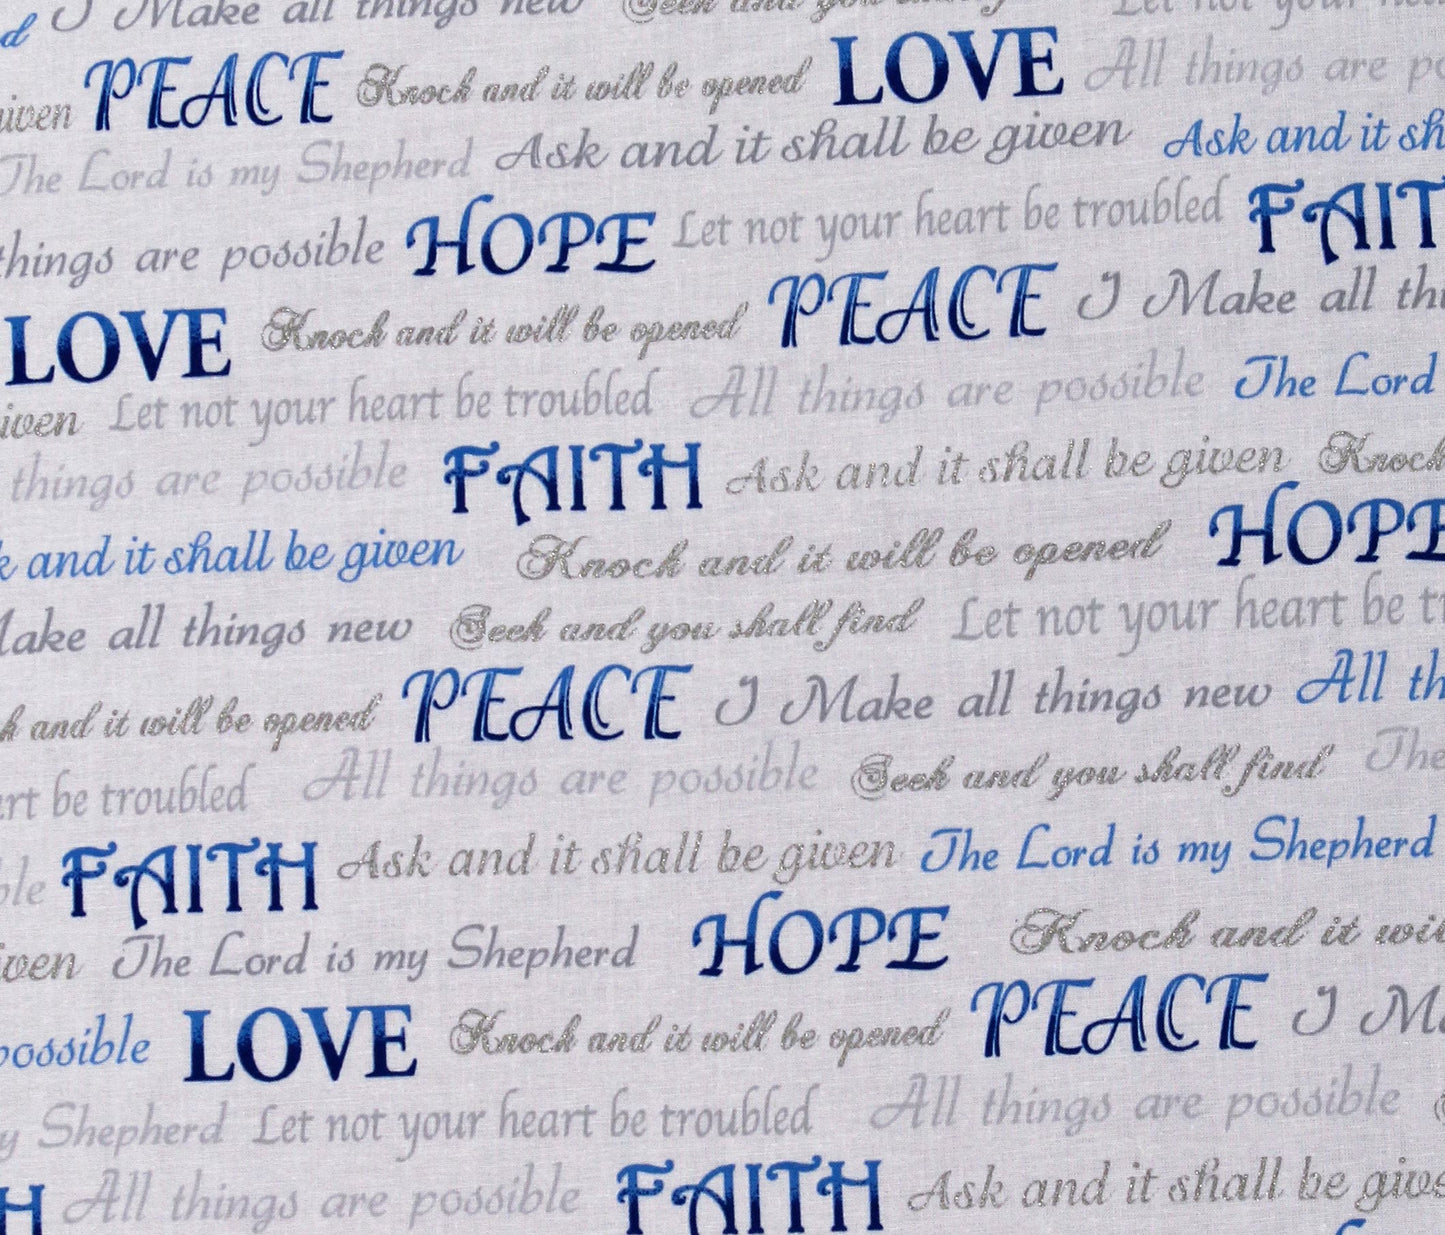 I Make all things new Seek and you shall Let not your heart
given PEACE Knock and it will be opened LOVE All things are
The Lord is my Shepherd Ask and it shall be given Ask and it
things are possible HOPE Let not your heart be troubled FAIT
LOVE Knock and it will be opened PEACE I Make all
iven Let not your heart be troubled All things are possible The Lord
things are possible FAITH Ask and it shall be given Knock
and it shall be given Knock and it will be opened HOPE
Make all things new Seek and you shall find Let not your heart be
and it will be opened PEACE I Make all things new All
be troubled All things are possible Seek and you shall find The
ble FAITH Ask and it shall be given The Lord is my Shepherd
iven The Lord is my Shepherd HOPE Knock and it
possible LOVE Knock and it will be opened PEACE I M
y Shepherd Let not your heart be troubled All things are possible
H All things are possible FAITH Ask and it shall be give